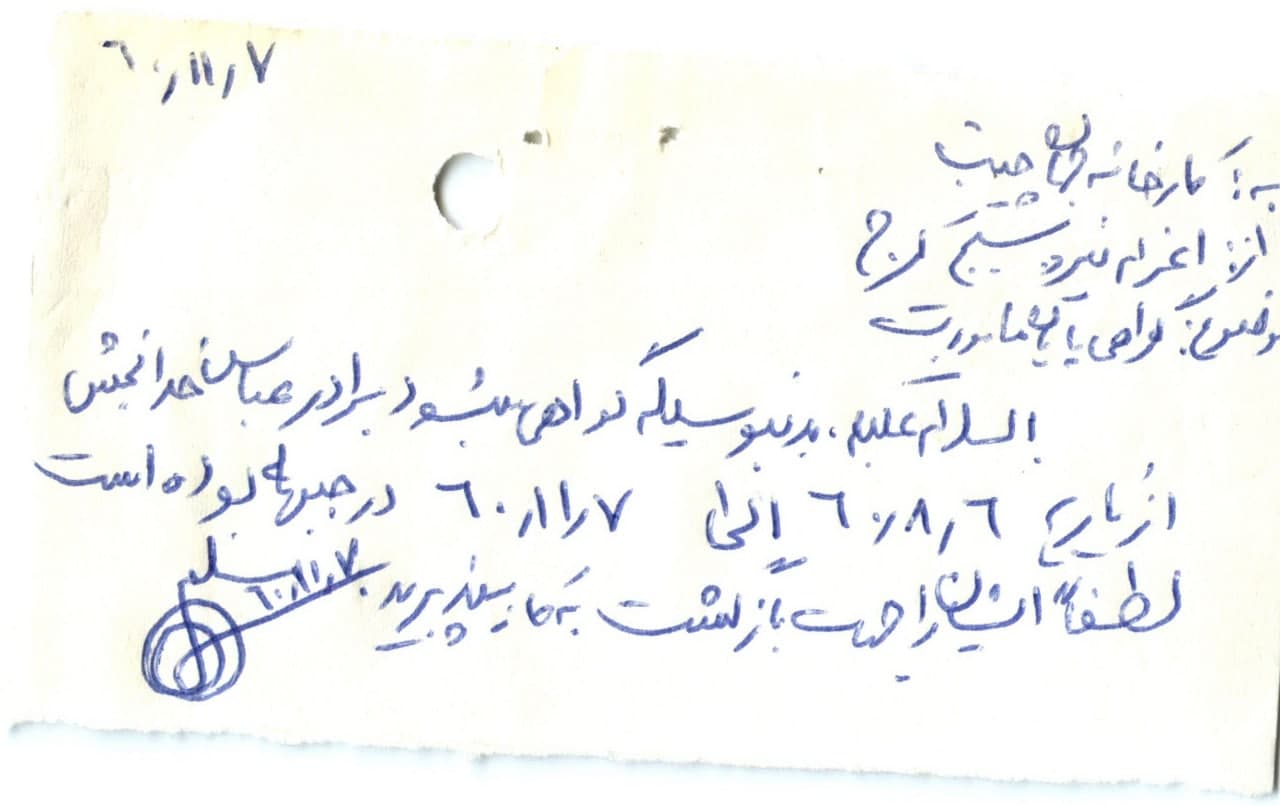 ۶۰/۱۱/۷
به: کارخانه جهان چیت
از: اعزام نیرو بسیج کرج
موضوع: گواهی پایان ماموریت
السلام علیکم، بدینوسیله گواهی میشود برادر عباس خدابخش
از تاریخ ۶۰/۸/۶ الی ۶۰/۱۱/۷ در جبهه بوده است
لطفاً ایشان را جهت بازگشت به کار بپذیرید.
۶۰/۱۱/۷